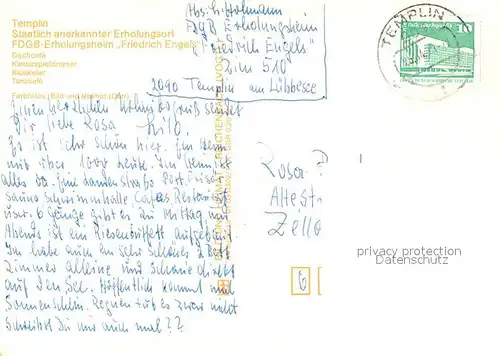 Templin
Staatlich anerkannter Erholungsort
FDGB-Erholungsheim „Friedrich Engels"
Gaststätte
Klubkeller
Tanzcafé
FDGB Erholungsheim
"Friedrich Engels"
Zim 510
2090 Templin am Lübbesee
TEMPLIN
10
Einen herzlichen Urlaubsgruß sendet
Dir, liebe Rosa Lilo.
Es ist sehr schön hier. Ein Heim
mit über 1000 Leute. Im Heim ist
alles da. Eine Ladenstraße Post, Frisör
Sauna Schwimmhalle Cafes, Restaurant
usw. 6 Gänge gibt es zu Mittag und
Abends ist ein Riesenbüfett aufgebaut.
Ich habe auch ein sehr schönes 2 Bett
Zimmer alleine und schaue direkt
auf den See. Hoffentlich kommt mal
Sonnenschein. Regnen tut es zwar nicht
Schreibst Du mir auch mal??
Rosa
Zelle
6
privacy protection
watermark